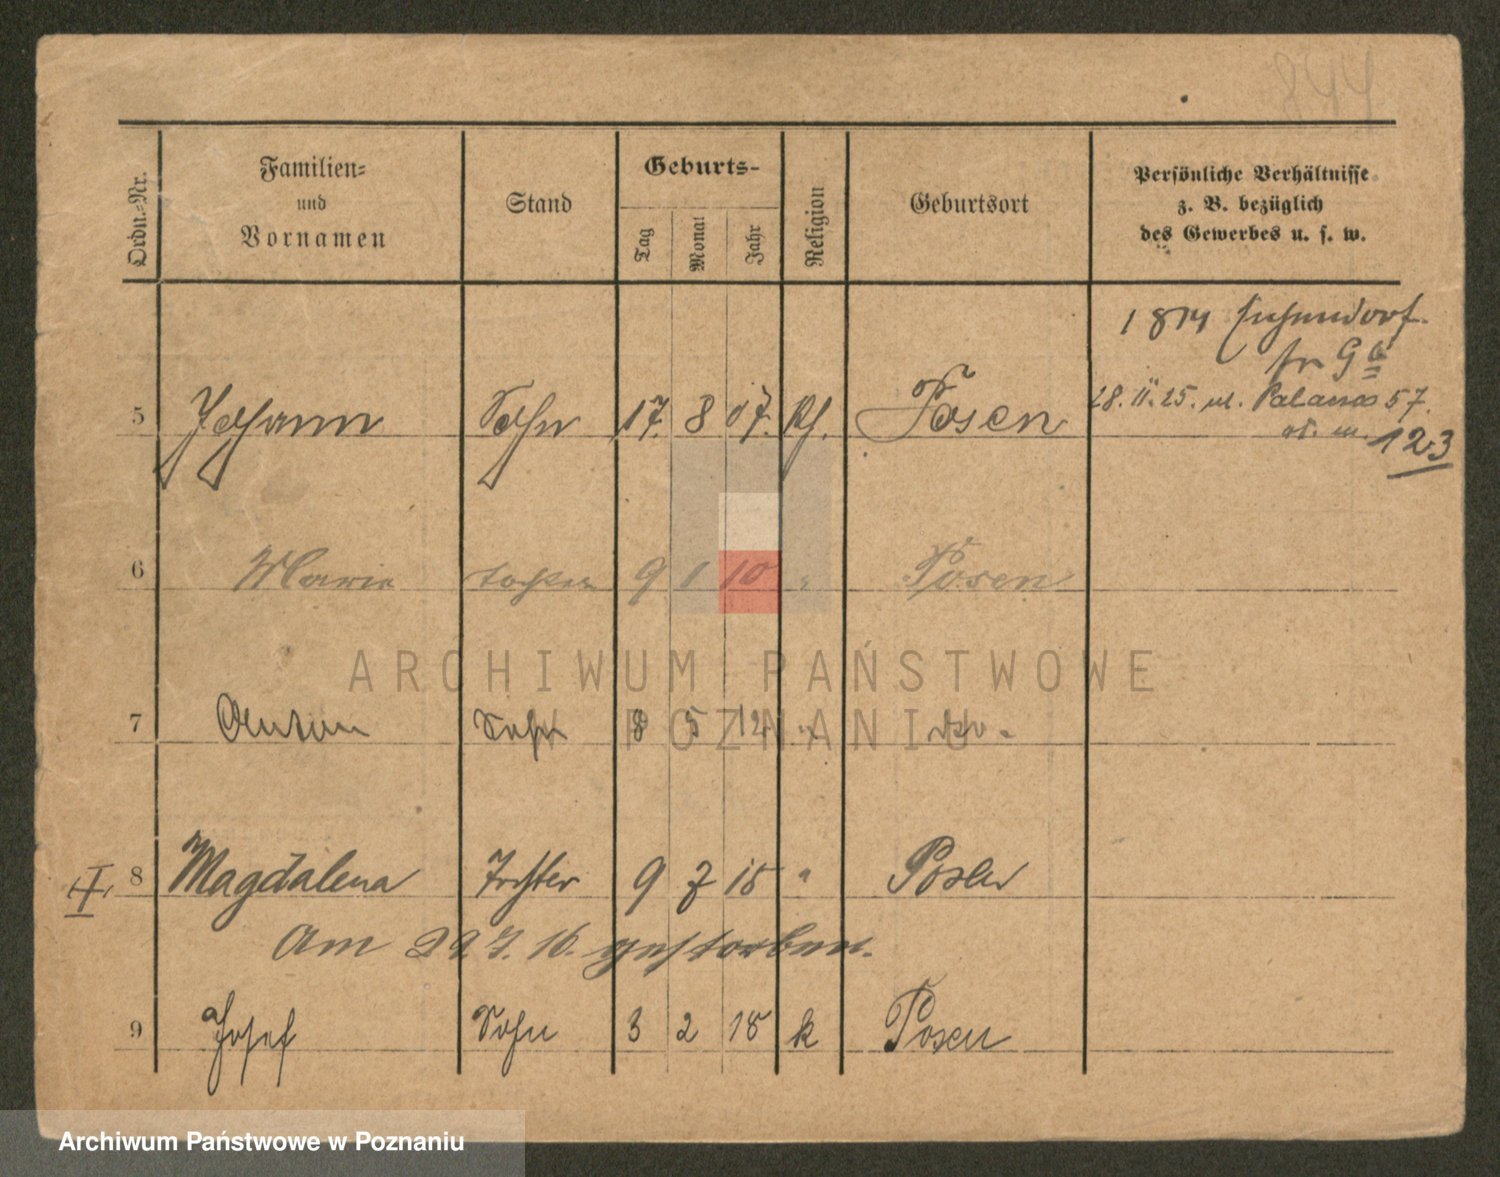 844
Ordn.-Nr.
Familien-
und
Vornamen
Stand
Geburts-
Tag
Monat
Jahr
Religion
Geburtsort
Persönliche Verhältnisse
z. B. bezüglich
des Gewerbes u. s. w.
5 Johann Sohn 17. 8 07. Posen
28. 11. 25. 57.
123
6 Marie tochter 9 1 10 " Posen
7 Sohn 8 5 12 "
8 Magdalena Tochter 9 7 15 " Posen
Am 29 7. 16. gestorben.
9 Josef Sohn 3 2 18 k Posen
ARCHIWUM PAŃSTWOWE
W POZNANIU
Archiwum Państwowe w Poznaniu